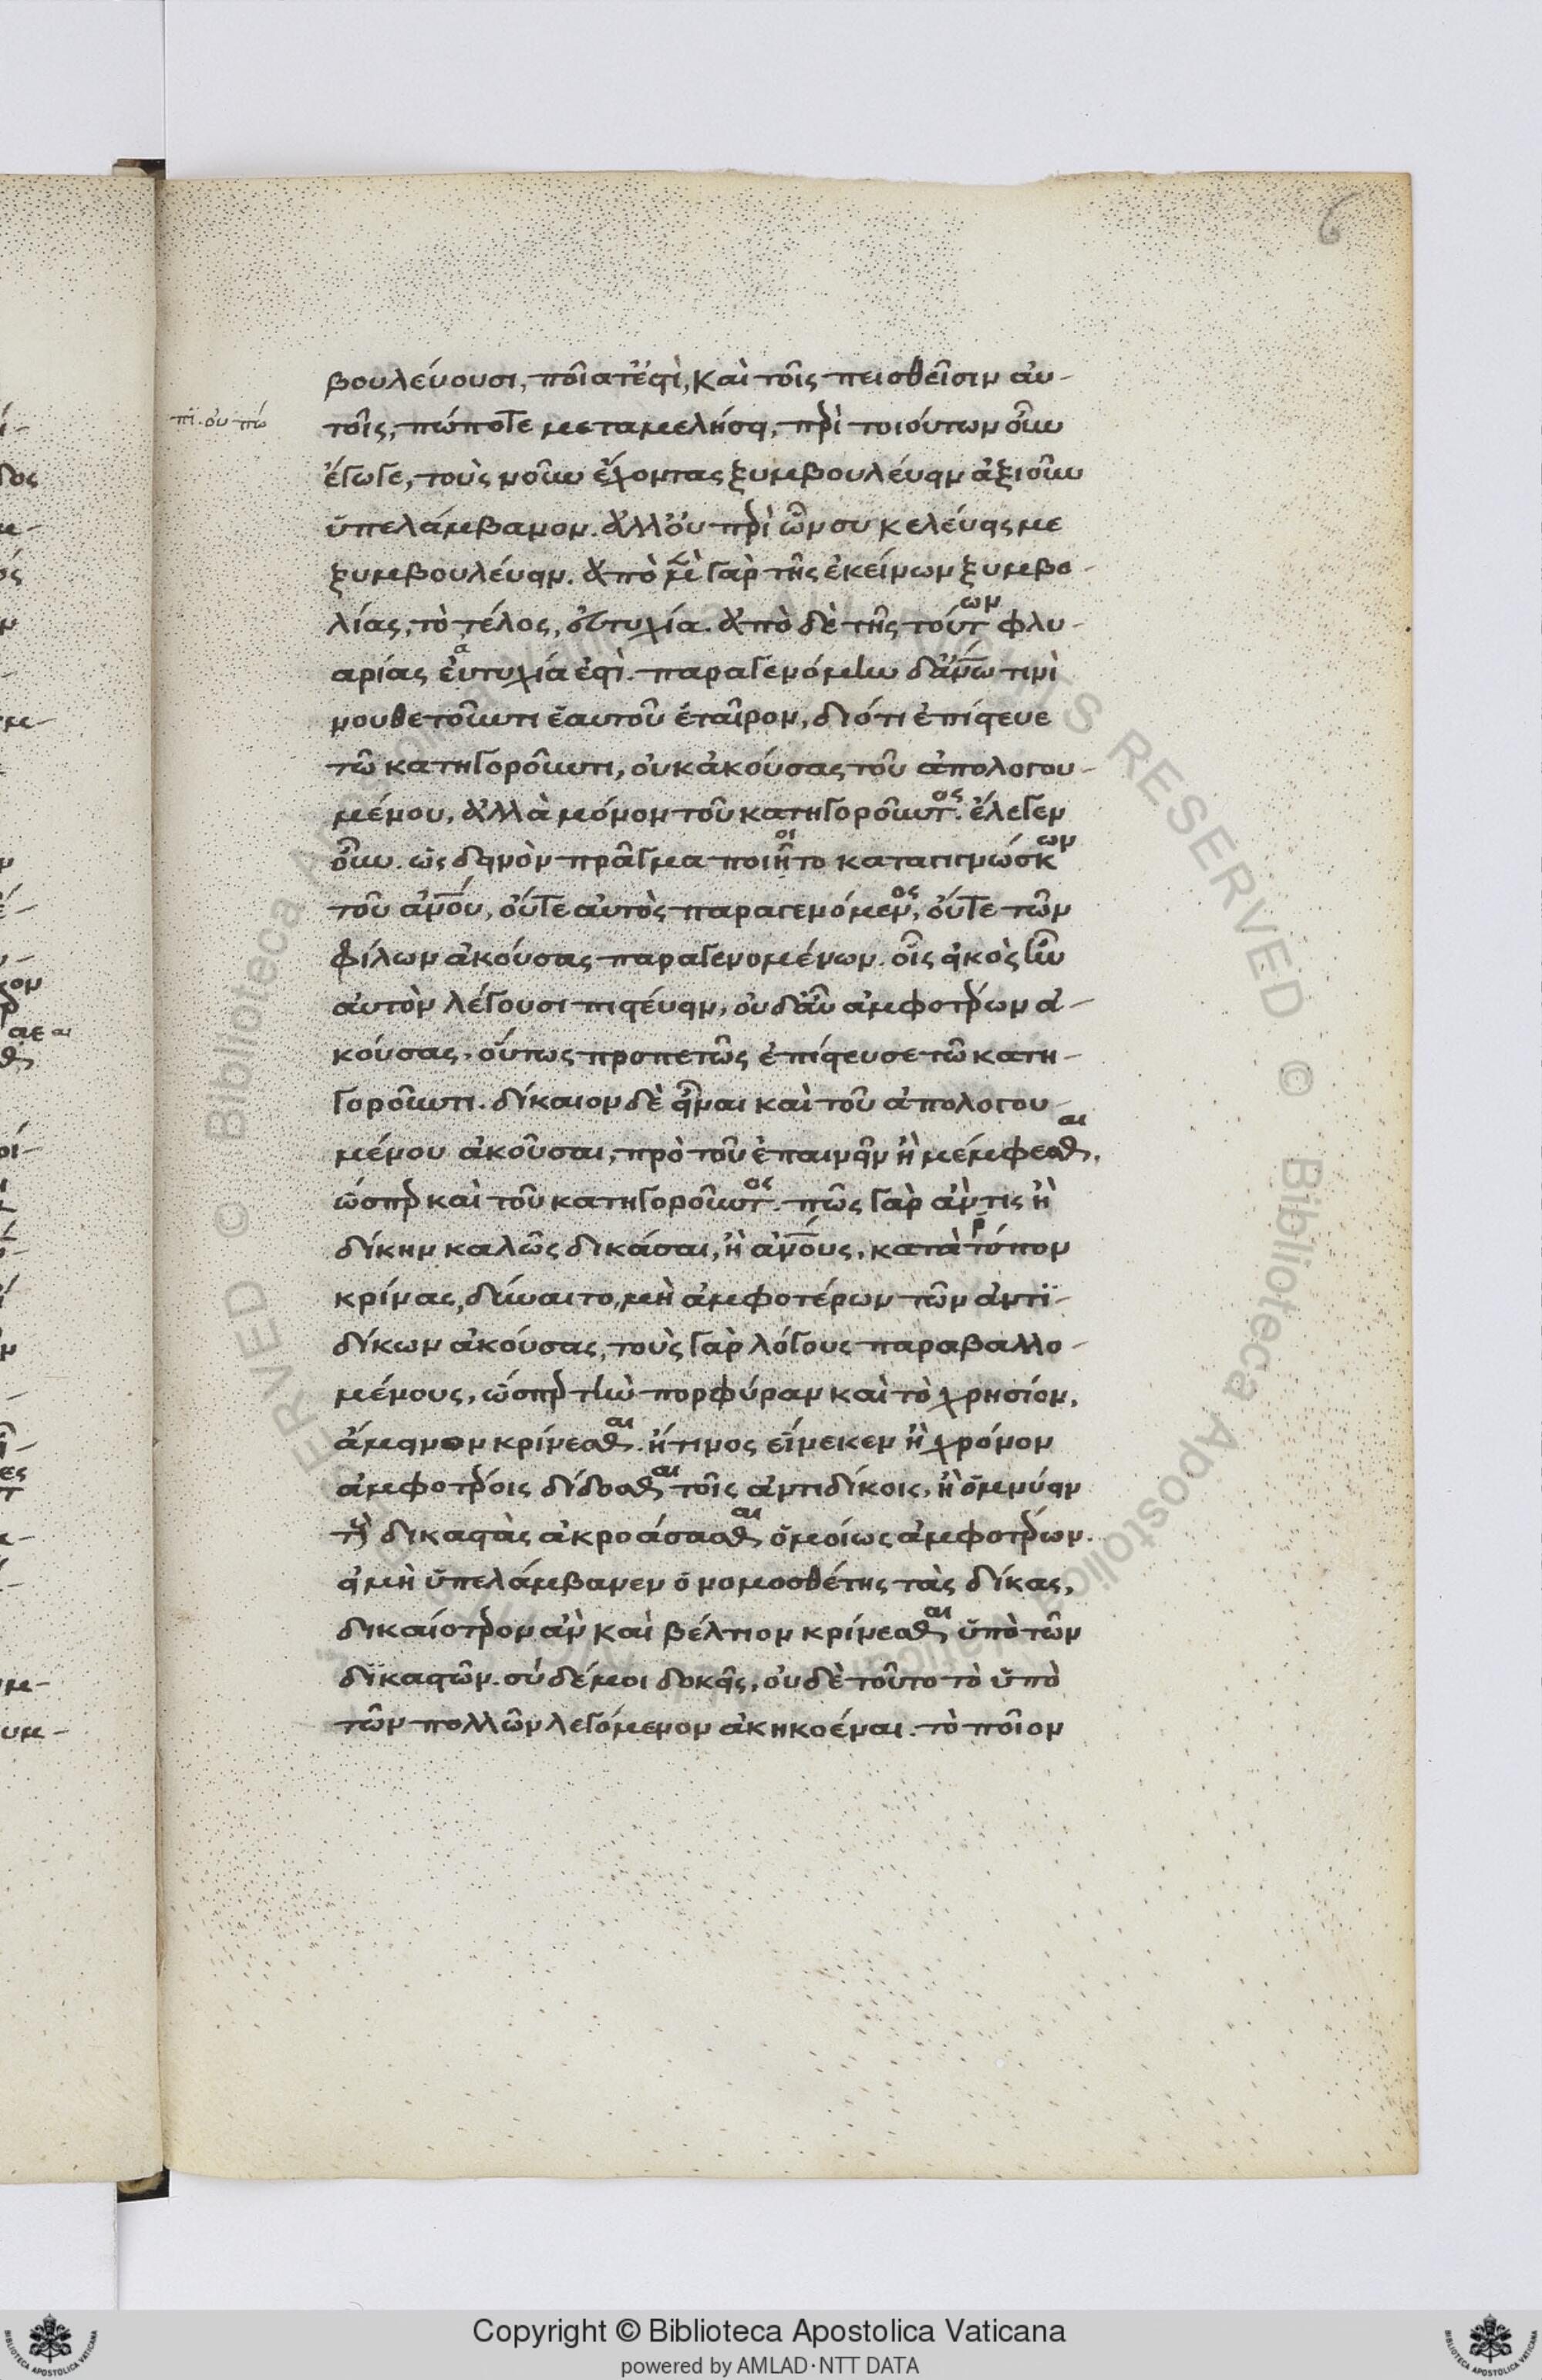 6
βουλεύουσι, ποῖα τέ ἐστὶ, καὶ τοῖς πεισθεῖσιν αὐ-
πι. οὐ πώ
τοῖς, πώποτε μεταμελήσει, περὶ τοιούτων οὖν
ἔγωγε, τοὺς νοῦν ἔχοντας ξυμβουλεύειν ἀξιοῦν
ὑπελάμβανον. ἀλλ' οὐ περὶ ὧν συ κελεύεις με
ξυμβουλεύειν. ἀπὸ μὲν γὰρ τῆς ἐκείνων ξυμβο-
λίας, τὸ τέλος, εὐτυχία. ἀπὸ δὲ τῆς τούτων φλυ-
αρίας εὐτυχία ἐστὶ. παραγενόμην δ' ἀνῶ τινὶ
νουθετοῦντι ἑαυτοῦ ἑταῖρον, διότι ἐπίστευε
τῶ κατηγοροῦντι, οὐκ ἀκούσας τοῦ ἀπολογου-
μένου, ἀλλὰ μόνον τοῦ κατηγοροῦντος. ἔλεγεν
οὖν. ὡς δεινὸν πρᾶγμα ποιῆτο καταγιγνώσκων
τοῦ ἀνοῦ, οὔτε αὐτὸς παραγενόμενος, οὔτε τῶν
φίλων ἀκούσας παραγενομένων. οἷς εἰκὸς ἦν
αὐτὸν λέγουσι πιστεύειν, οὐδ' αὖ ἀμφοτέρων ἀ-
κούσας, οὕτως προπετῶς ἐπίστευσε τῶ κατη-
γοροῦντι. δίκαιον δὲ εἶναι καὶ τοῦ ἀπολογου-
μένου ἀκοῦσαι, πρὸ τοῦ ἐπαινεῖν ἢ μέμφεσθαι,
ὥσπερ καὶ τοῦ κατηγοροῦντος. πῶς γὰρ ἄν τις ἢ
δίκην καλῶς δικάσαι, ἢ ἀνους, κατὰ τρόπον
κρίνας, δύναιτο, μὴ ἀμφοτέρων τῶν ἀντι-
δίκων ἀκούσας, τοὺς γὰρ λόγους παραβαλλο-
μένους, ὥσπερ τὴν πορφύραν καὶ τὸ χρησίον,
ἄμεινον κρίνεσθαι. ἤ τινος εἵνεκεν ἢ χρόνον
ἀμφοτέροις δίδοσθαι τοῖς ἀντιδίκοις, ἢ ὀμνύειν
τοὺς δικαστὰς ἀκροάσασθαι ὁμοίως ἀμφοτέρων.
εἰ μὴ ὑπελάμβανεν ὁ νομοσθέτης τὰς δίκας,
δικαιότερον ἂν καὶ βέλτιον κρίνεσθαι ὑπὸ τῶν
δικαστῶν. σὺ δέ μοι δοκεῖς, οὐδὲ τοῦτο τὸ ὑπὸ
τῶν πολλῶν λεγόμενον ἀκηκοέναι. τὸ ποῖον
Copyright © Biblioteca Apostolica Vaticana
powered by AMLAD·NTT DATA